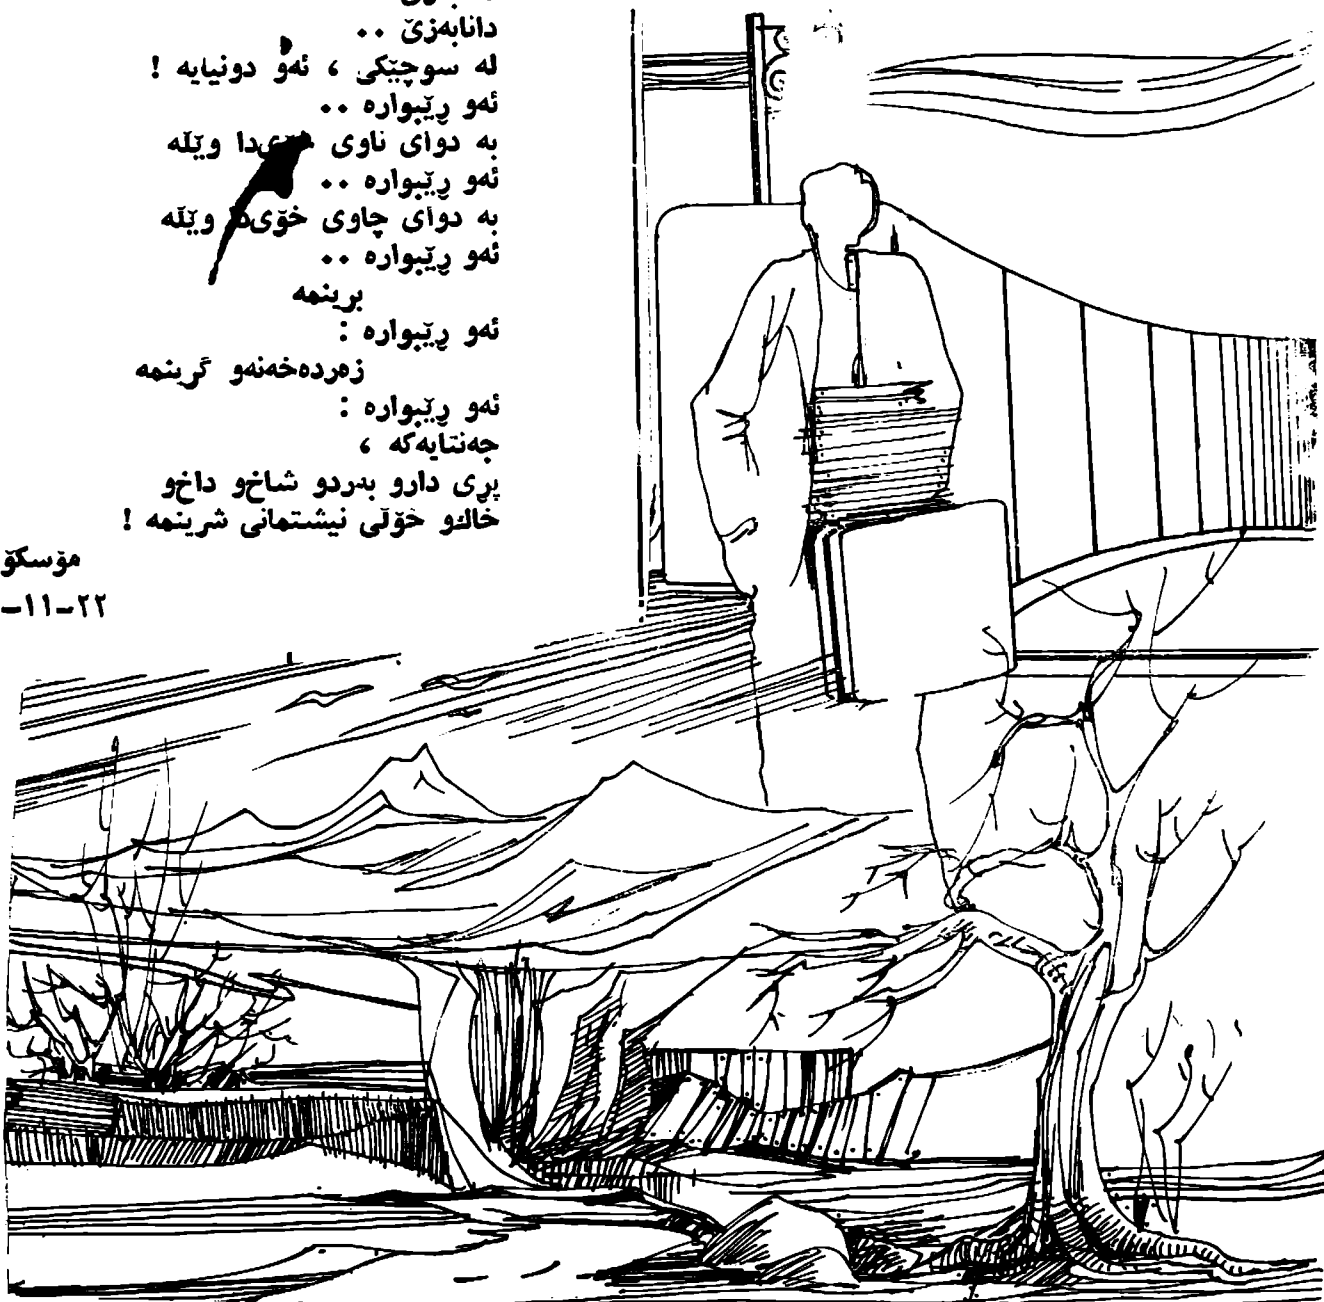 دانابەزێ ..
لە سوچێکی ، ئەو دونیایە !
ئەو ڕێبوارە ..
بە دوای ناوی خۆیدا وێڵە
ئەو ڕێبوارە ..
بە دوای چاوی خۆیدا وێڵە
ئەو ڕێبوارە ..
برینمە
ئەو ڕێبوارە :
زەردەخەنەو گرینمە
ئەو ڕێبوارە :
جەنتایەکە ،
پڕی دارو بەردو شاخ‌و داخ‌و
خاک‌و خۆڵی نیشتمانی شرینمە !
مۆسکۆ
٢٢-١١-